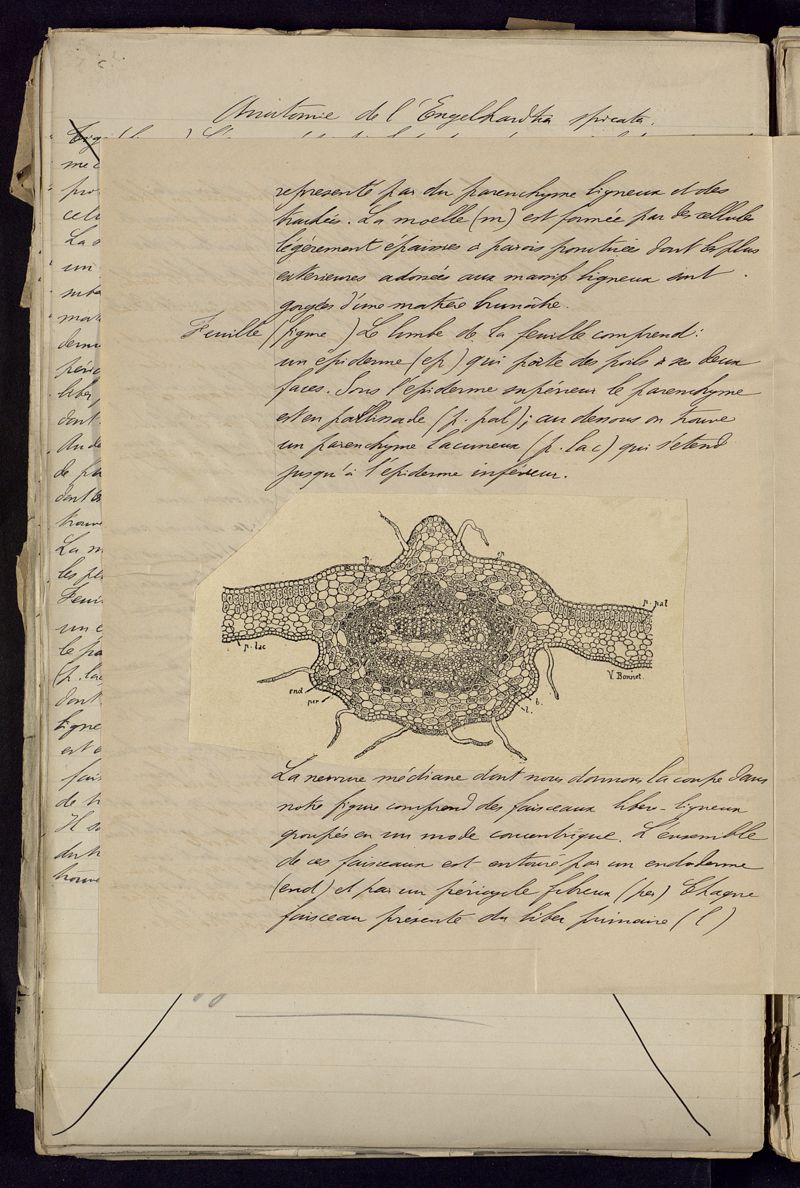 Anatomie de l'Engelhardtia spicata.
représenté par du parenchyme ligneux et des
trachées. La moelle (m) est formée par des cellules
légèrement épaissies à parois ponctuées dont les plus
extérieures adossées aux massifs ligneux sont
gorgées d'une matière brunâtre.
Feuille (figure ) Le limbe de la feuille comprend :
un épiderme (ep) qui porte des poils à ses deux
faces. Sous l'épiderme supérieur le parenchyme
est en pallissade (p. pal); au dessous on trouve
un parenchyme lacuneux (p. lac) qui s'étend
jusqu'à l'épiderme inférieur.
p. pal
p. lac
V. Bonnet.
end
per
b.
l.
La nervure médiane dont nous donnons la coupe dans
notre figure comprend des faisceaux libero-ligneux
groupés en un mode concentrique. L'ensemble
de ces faisceaux est entouré par un endoderme
(end) et par un péricycle fibreux (per) Chaque
faisceau présente du liber primaire (l)
La
un
dont
de
dont
trouve
La m
les
Feui
un
le pa
(p. lac
dont
ligne
est
fais
de
Il
du
trouve